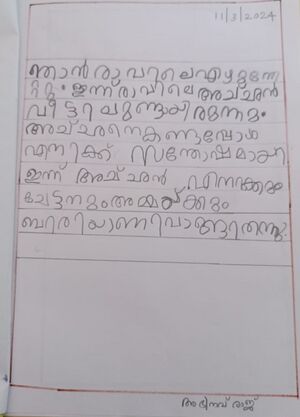 11/3/2024
ഞാൻ രാവിലെ എഴുന്നേ
റ്റു. ഇന്ന് രാവിലെ അച്ഛൻ
വീട്ടിലുണ്ടായിരുന്നു.
അച്ഛനെ കണ്ടപ്പോൾ
എനിക്ക് സന്തോഷമായി
ഇന്ന് അച്ഛൻ എനക്കും
ചേട്ടനും അമ്മയ്ക്കും
ബിരിയാണി വാങ്ങിതന്നു.
അഭിനവ് രാജ്